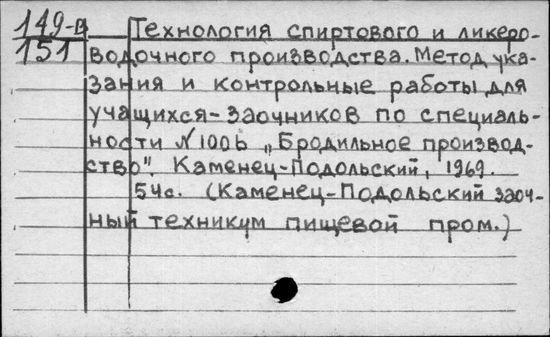 149-В Технология спиртового и ликеро-
151 водочного производства. Метод. ука-
зания и контрольные работы для
учащихся-заочников по специаль-
ности №1006 „Бродильное производ-
ство". Каменец-Подольский, 1969.
54с. (Каменец-Подольский заоч-
ный техникум пищевой пром.)